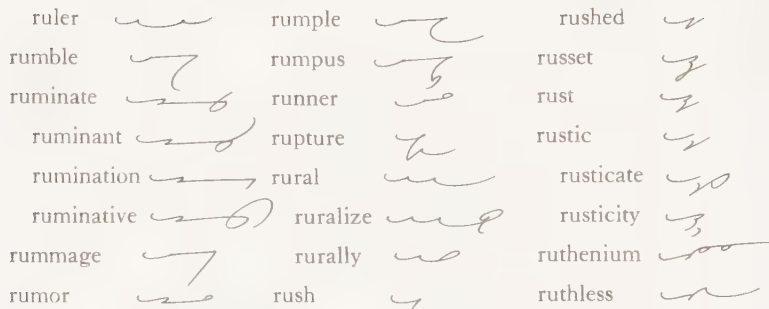 ruler
rumble
ruminate
ruminant
rumination
ruminative
rummage
rumor
rumple
rumpus
runner
rupture
rural
ruralize
rurally
rush
rushed
russet
rust
rustic
rusticate
rusticity
ruthenium
ruthless